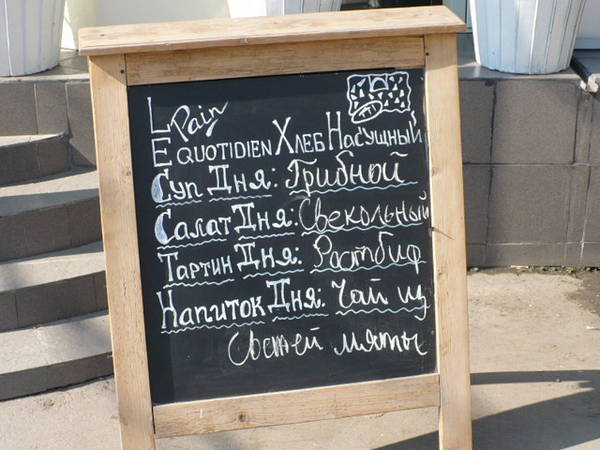 Le Pain
Quotidien Хлеб Насущный
Суп Дня: Грибной
Салат Дня: Свекольный
Тартин Дня: Ростбиф
Напиток Дня: Чай из
Свежей мяты